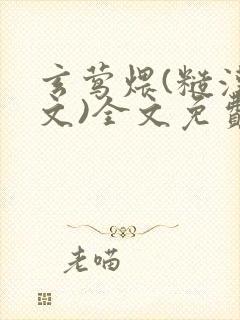 玄莺煨(糙汉
文)全文免费
老喵